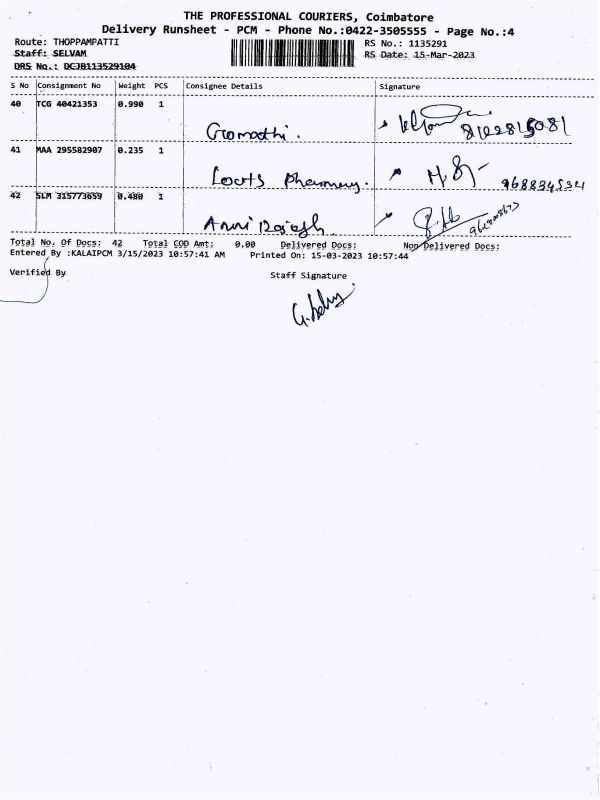 THE PROFESSIONAL COURIERS, Coimbatore
Delivery Runsheet - PCM - Phone No.:0422-3505555 - Page No.:4
Route: THOPPAMPATTI RS No.: 1135291
Staff: SELVAM RS Date: 15-Mar-2023
DRS No.: DCJB113529104
S No Consignment No Weight PCS Consignee Details Signature
40 TCG 40421353 0.990 1
Gomathi. 8122815081
41 MAA 295582907 0.235 1
pharmacy.
42 SLM 315773659 0.480 1
Total No. Of Docs: 42 Total COD Amt: 0.00 Delivered Docs: Non Delivered Docs:
Entered By :KALAIPCM 3/15/2023 10:57:41 AM Printed On: 15-03-2023 10:57:44
Verified By Staff Signature